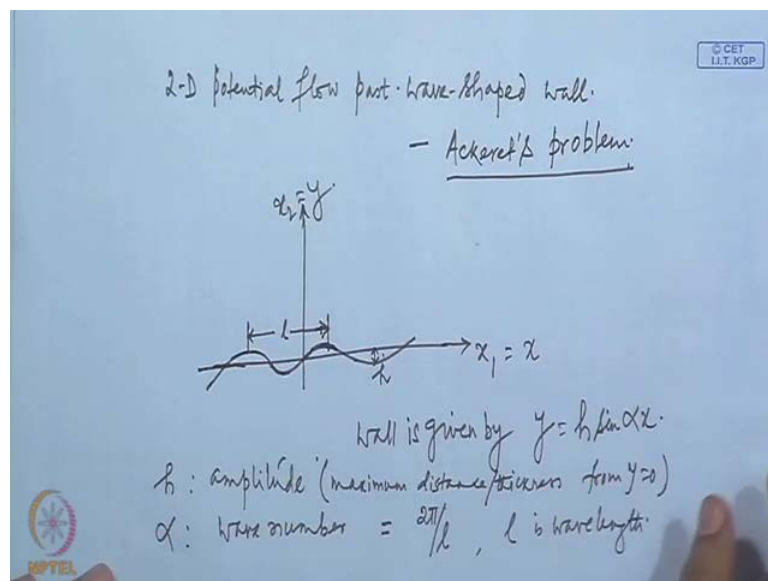 © CET
I.I.T. KGP
2-D potential flow past wave-shaped wall.
- Ackeret's problem.
x₂ = y
l
x₁ = x
h
Wall is given by y = h sin αx.
h : amplitude (maximum distance/thickness from y=0)
α : wave number = 2π/l , l is wavelength.
NPTEL